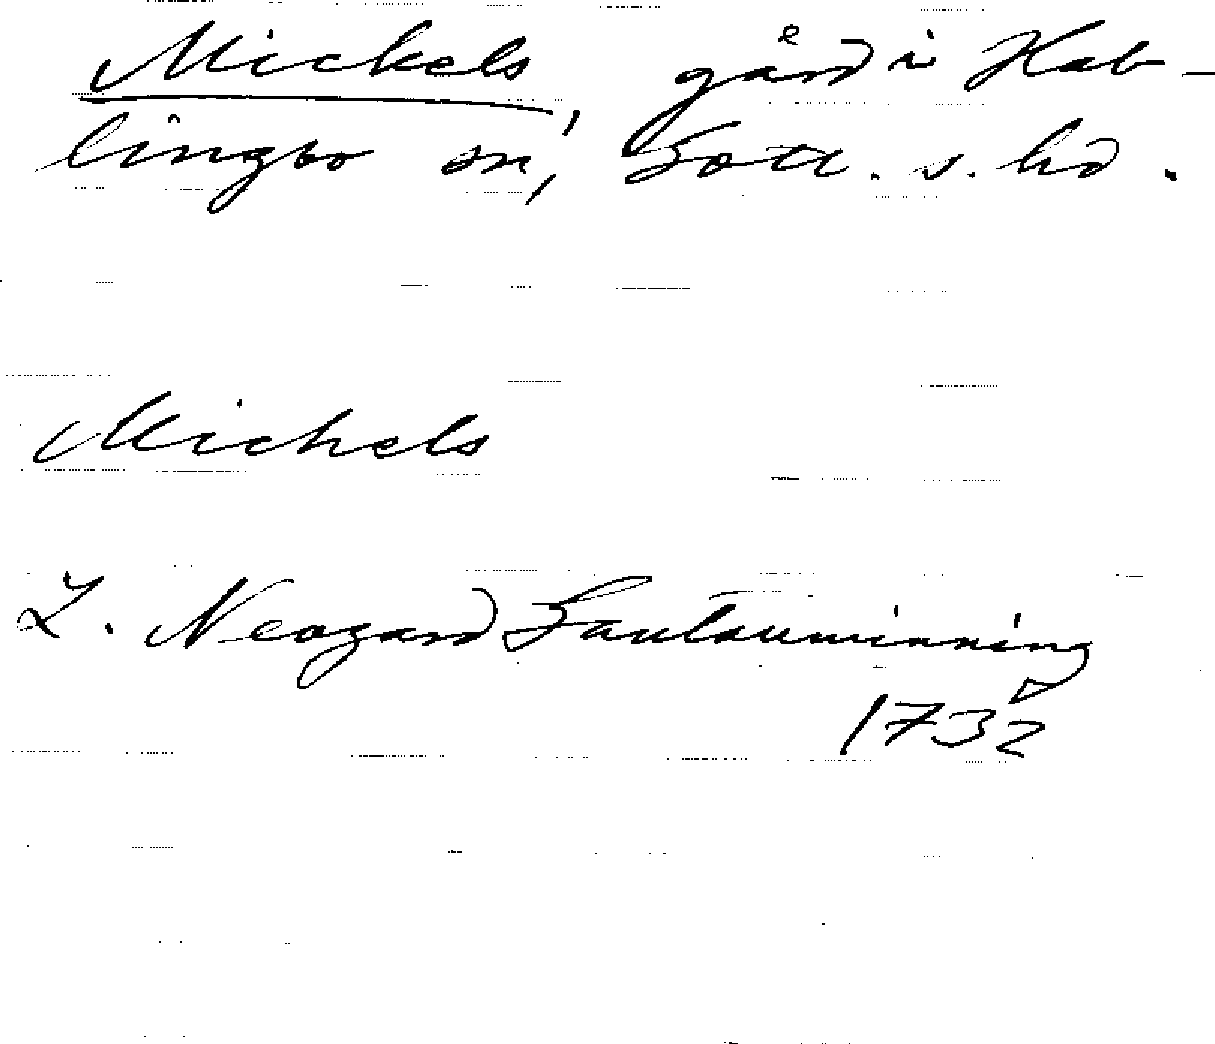 Mickels, gård i Hab-
lingbo sn, Gotl. s. hd.
Michels
L. Neogard Gautauminning
1732